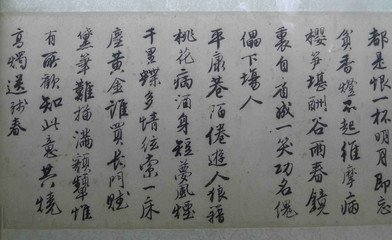 都是恨一杯明月即忘
貧香燈不起維摩病
櫻笋堪酬谷雨春鏡
裏自看成一笑功名傀
儡下場人
平康巷陌倦遊人狼藉
桃花病酒身短夢風煙
千里蝶多情絃索一床
塵黃金誰買長門賦
黛筆難描滿額顰惟
有所歡知此意共燒
高燭送殘春